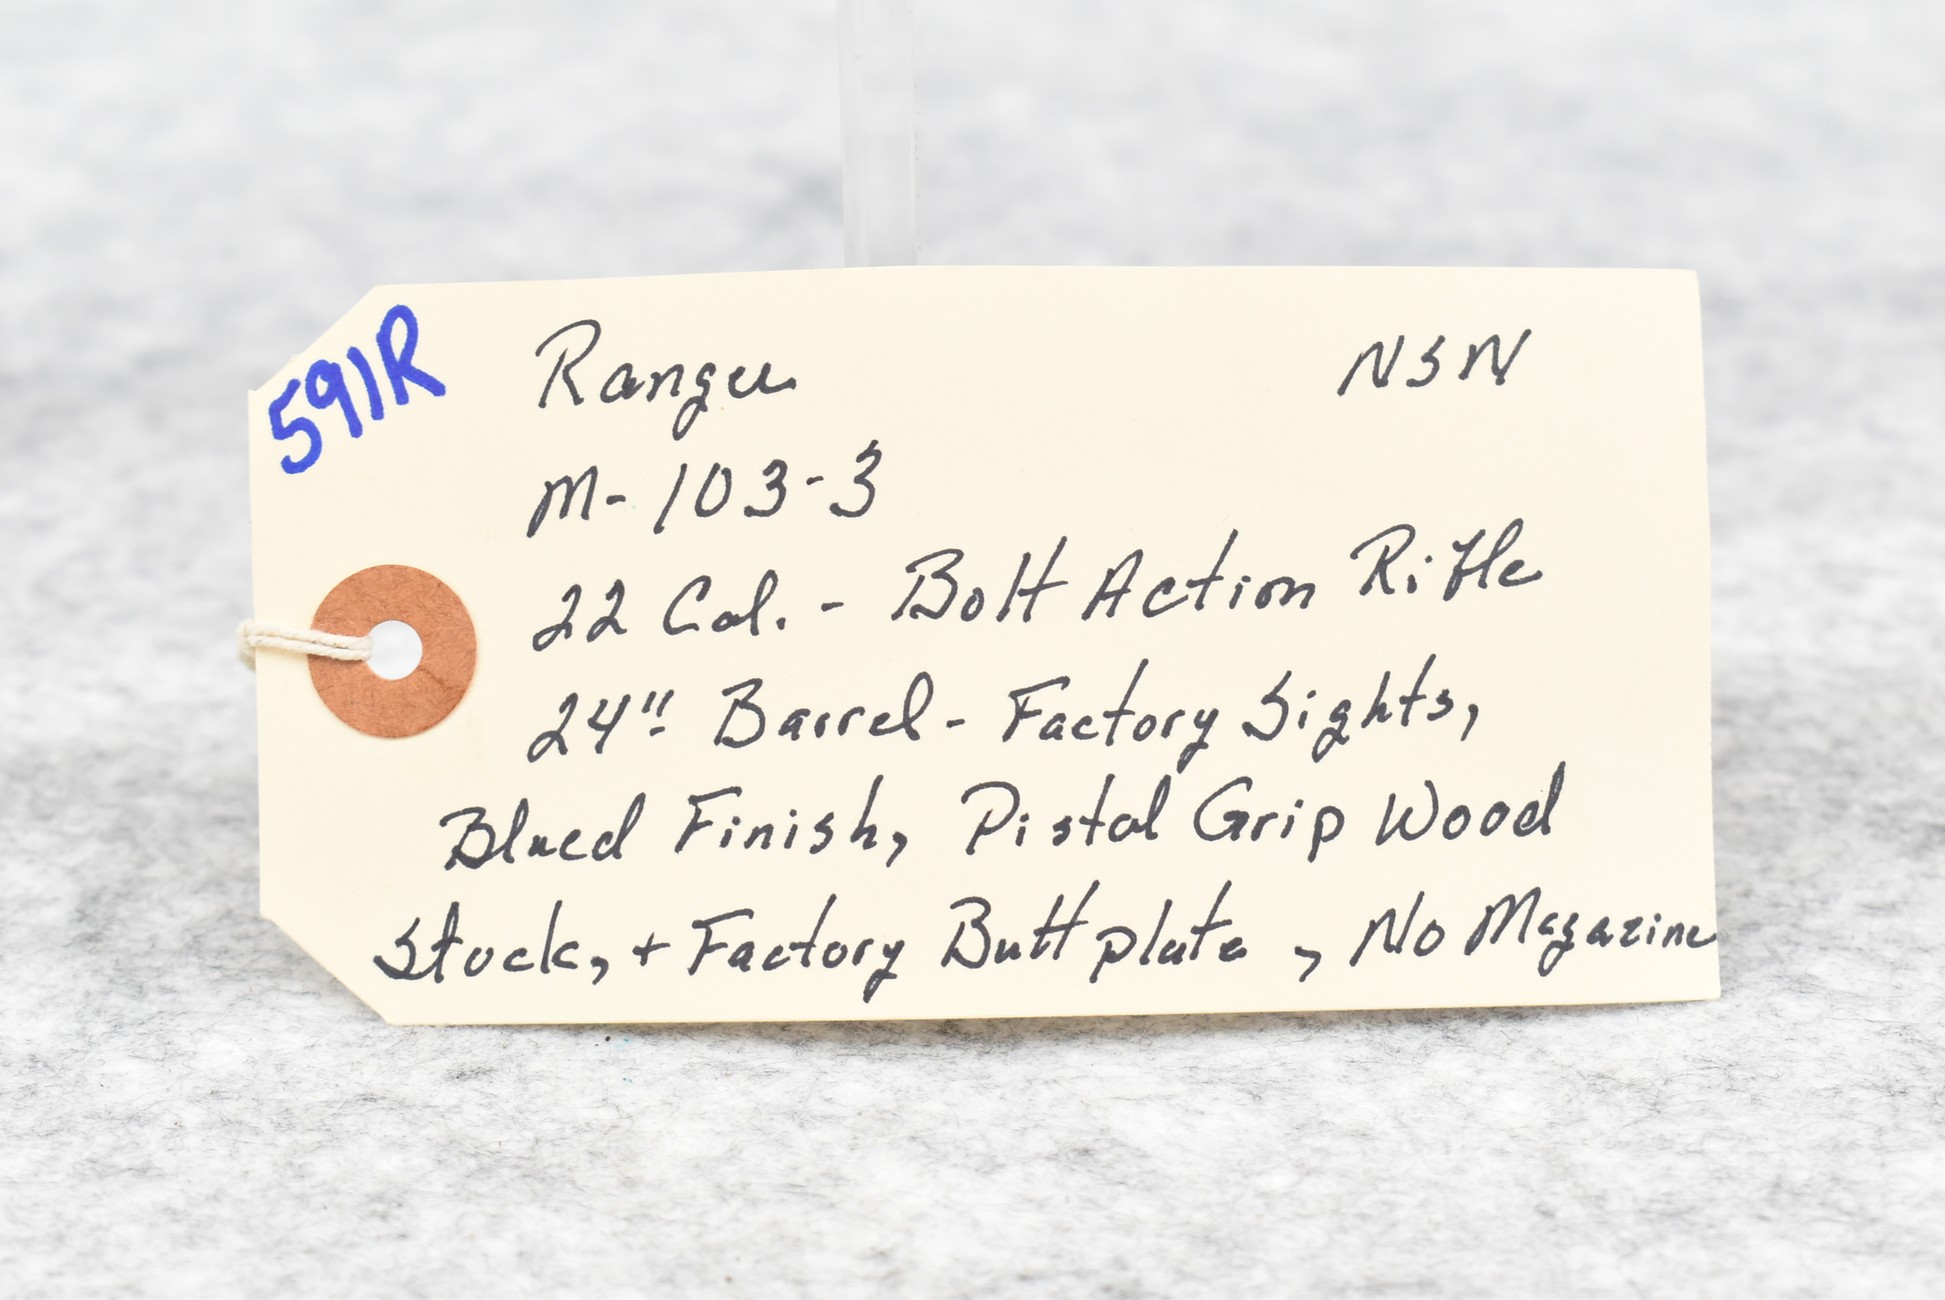 591R
Ranger NSN
M-103-3
22 Cal. - Bolt Action Rifle
24" Barrel - Factory Sights,
Blued Finish, Pistol Grip Wood
Stock, + Factory Buttplate, No Magazine